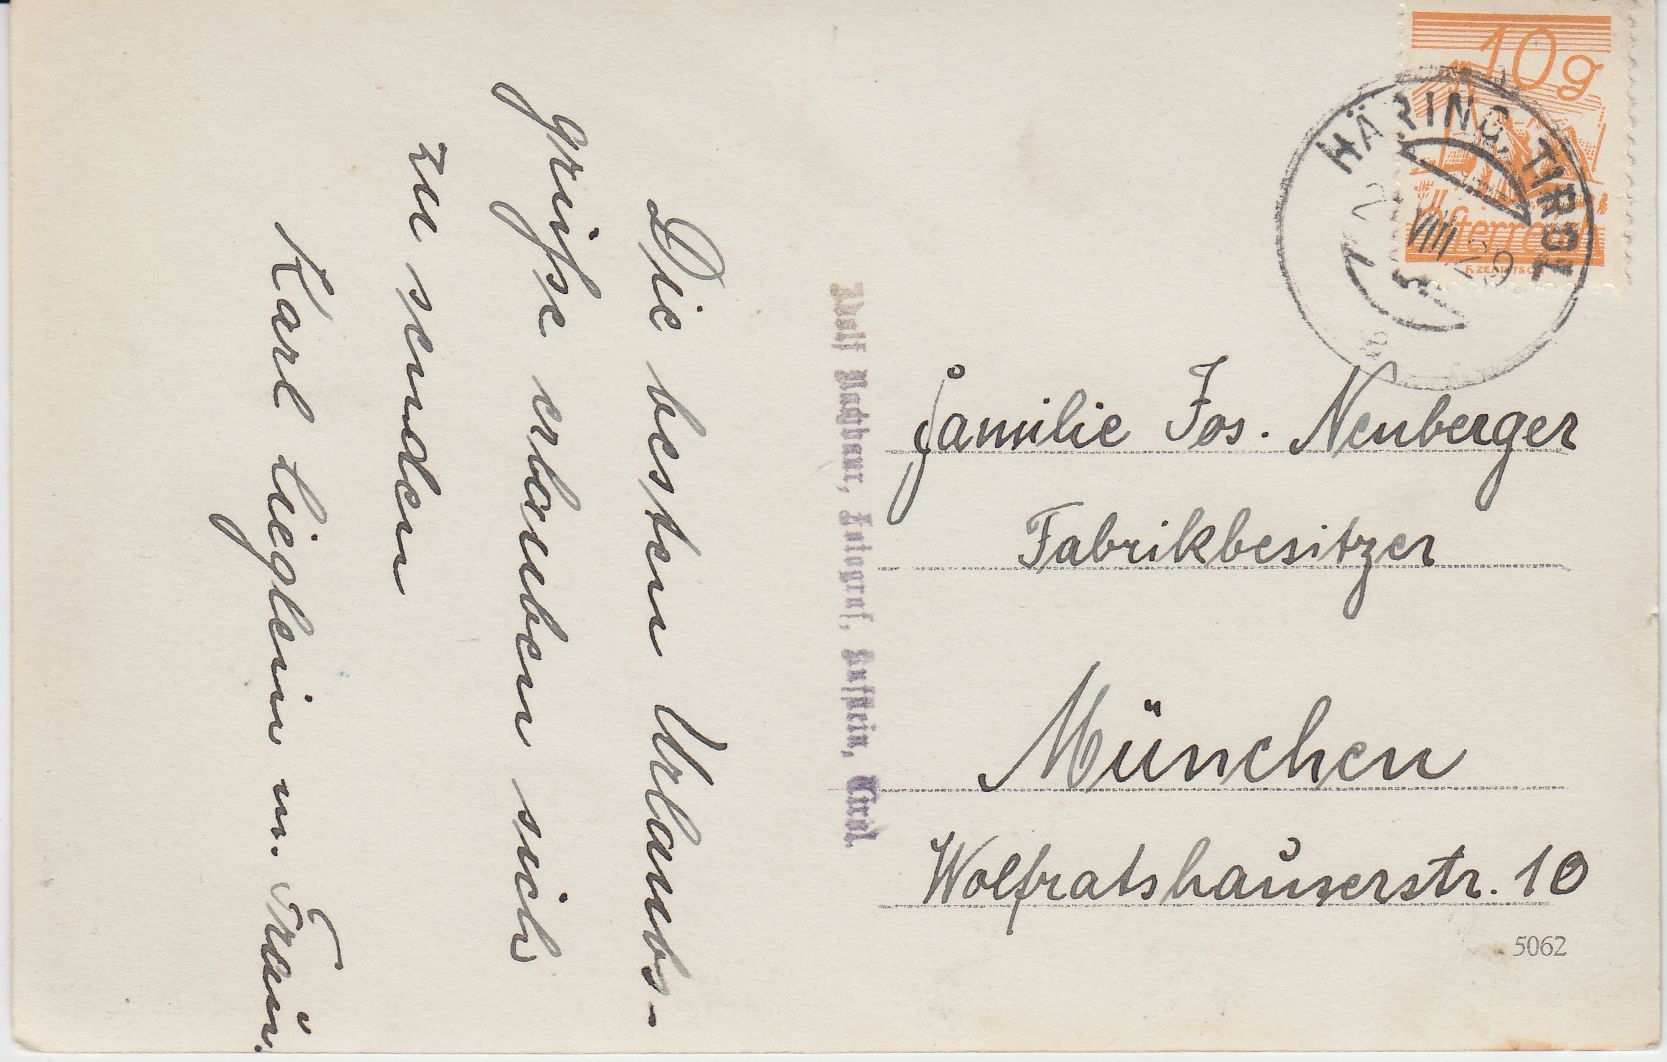 Die besten Urlaubs-
grüße erlauben sich
zu senden
Karl Lieglein u. Frau.
Adolf Nachbaur, Fotograf, Kufstein, Tirol.
10g
Österreich
HÄRING, TIROL
VIII 29
Familie Jos. Neuberger
Fabrikbesitzer
München
Wolfratshauserstr. 10
5062